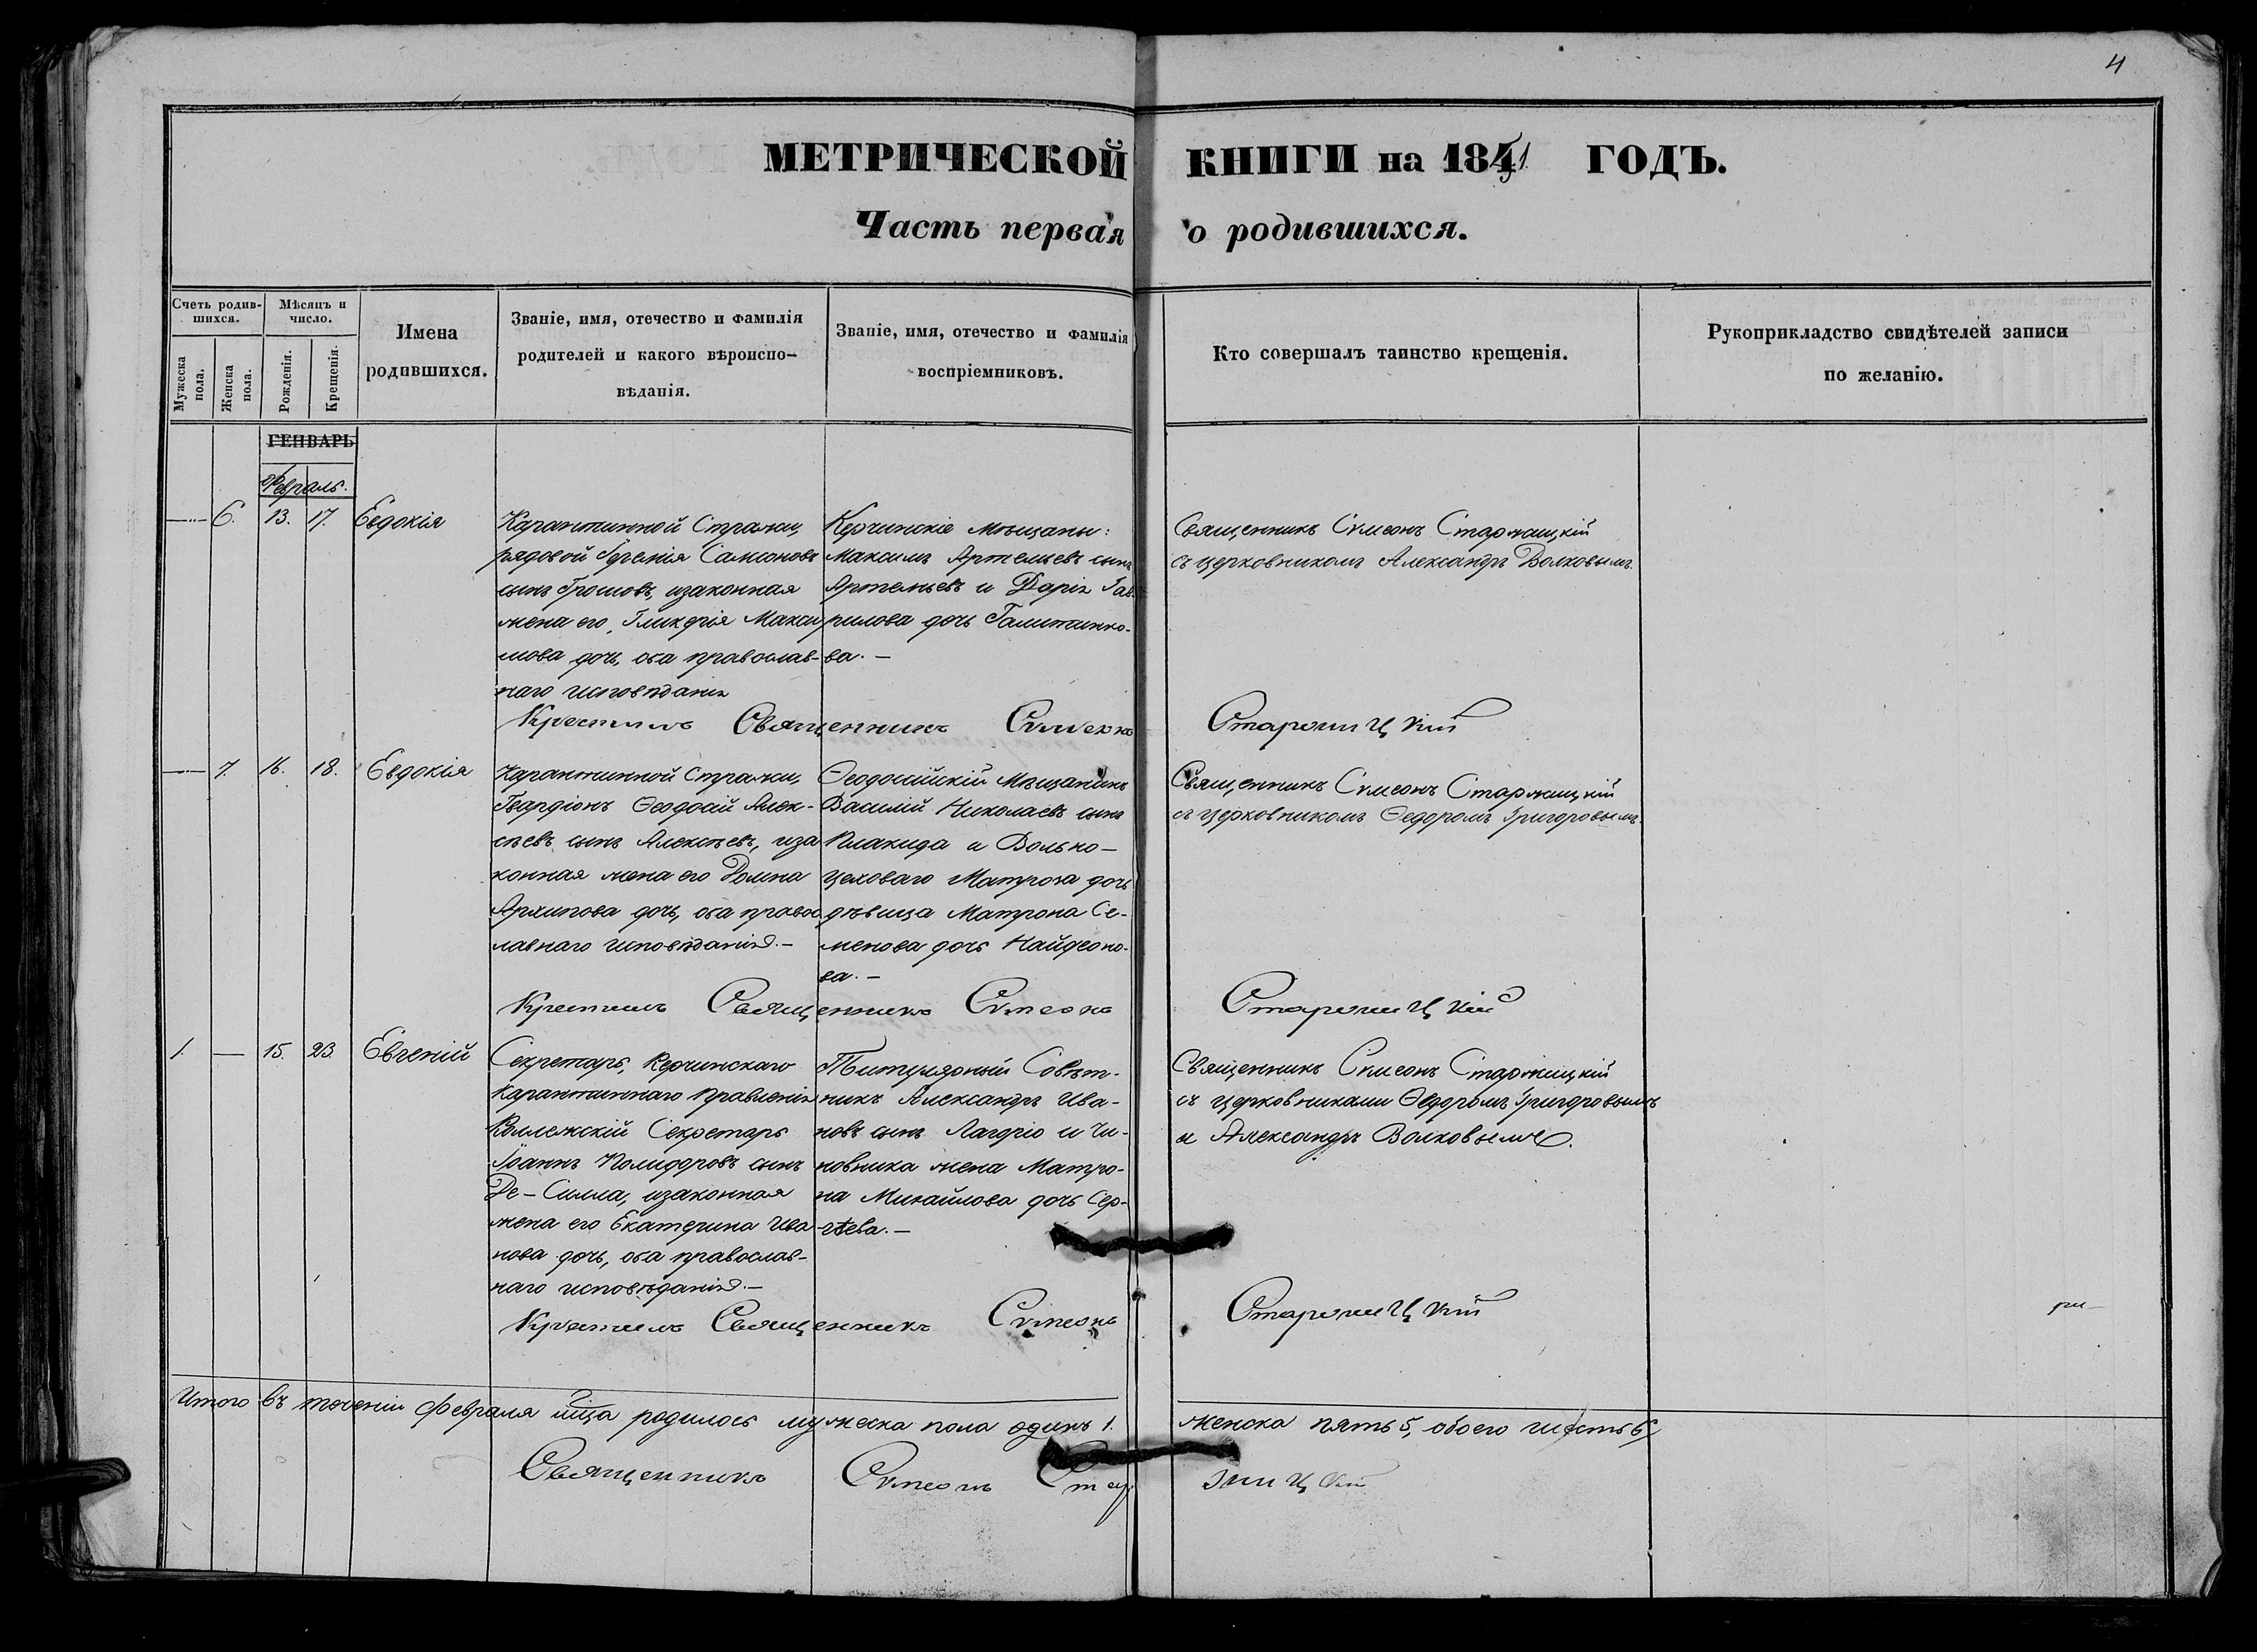 4
МЕТРИЧЕСКОЙ КНИГИ на 1851 ГОДЪ.
Часть первая о родившихся.
Счетъ родив-
шихся.
Мѣсяцъ и
число.
Мужеска
пола.
Женска
пола.
Рожденія.
Крещенія.
Имена
родившихся.
Званіе, имя, отечество и фамилія
родителей и какого вѣроиспо-
вѣданія.
Званіе, имя, отечество и фамилія
воспріемниковъ.
Кто совершалъ таинство крещенія.
Рукоприкладство свидѣтелей записи
по желанію.
ГЕНВАРЬ
Февраль.
6. 13. 17. Евдокія
Карантинной Стражи,
рядовой Самсоновъ
сынъ Грошовъ, изаконная
жена его, Гликерія Макси
мова дочь, оба православ-
наго исповѣданія
Керчинскіе Мѣщаны:
Максимъ Артемьевъ сынъ
Артемьевъ и Дарія Гав-
рилова дочь
ва. —
Священникъ Сѵмеонъ Старжицкій
съ церковникомъ Александръ Волковымъ.
Крестилъ Священникъ Сѵмеонъ Старжицкій
7. 16. 18. Евдокія
Карантинной Стражи,
Гвардіонъ Ѳеодосій Алек-
сѣевъ сынъ Алексѣевъ, иза
конная жена его Домна
Архипова дочь, оба правос
лавнаго исповѣданія. —
Ѳеодосійскій Мѣщанинъ
Василій Николаевъ сынъ
Плакида и Вольно-
цеховаго Матроса дочь
дѣвица Матрона Се-
менова дочь Найдено-
ва. —
Священникъ Сѵмеонъ Старжицкій
съ церковникомъ Ѳедоромъ Григоровымъ.
Крестилъ Священникъ Сѵмеонъ Старжицкій
1. — 15. 23. Евгеній
Секретарь, Керчинскаго
Карантиннаго Правленія
Коллежскій Секретарь
Іоаннъ Полидоровъ сынъ
Де-Силла, изаконная
жена его Екатерина Ива
нова дочь, оба православ-
наго исповѣданія. —
Титулярный Совѣт-
никъ Александръ Ива-
новъ сынъ Лагоріо и Чи-
новника жена Матро-
на Михайлова дочь Сер-
гѣева. —
Священникъ Сѵмеонъ Старжицкій
съ церковниками Ѳедоромъ Григоровымъ
и Александръ Волковымъ.
Крестилъ Священникъ Сѵмеонъ Старжицкій
Итого въ теченіи Февраля мца родилось мужеска пола одинъ 1. женска пять 5, обоего шесть 6
Священникъ Сѵмеонъ Старжицкій